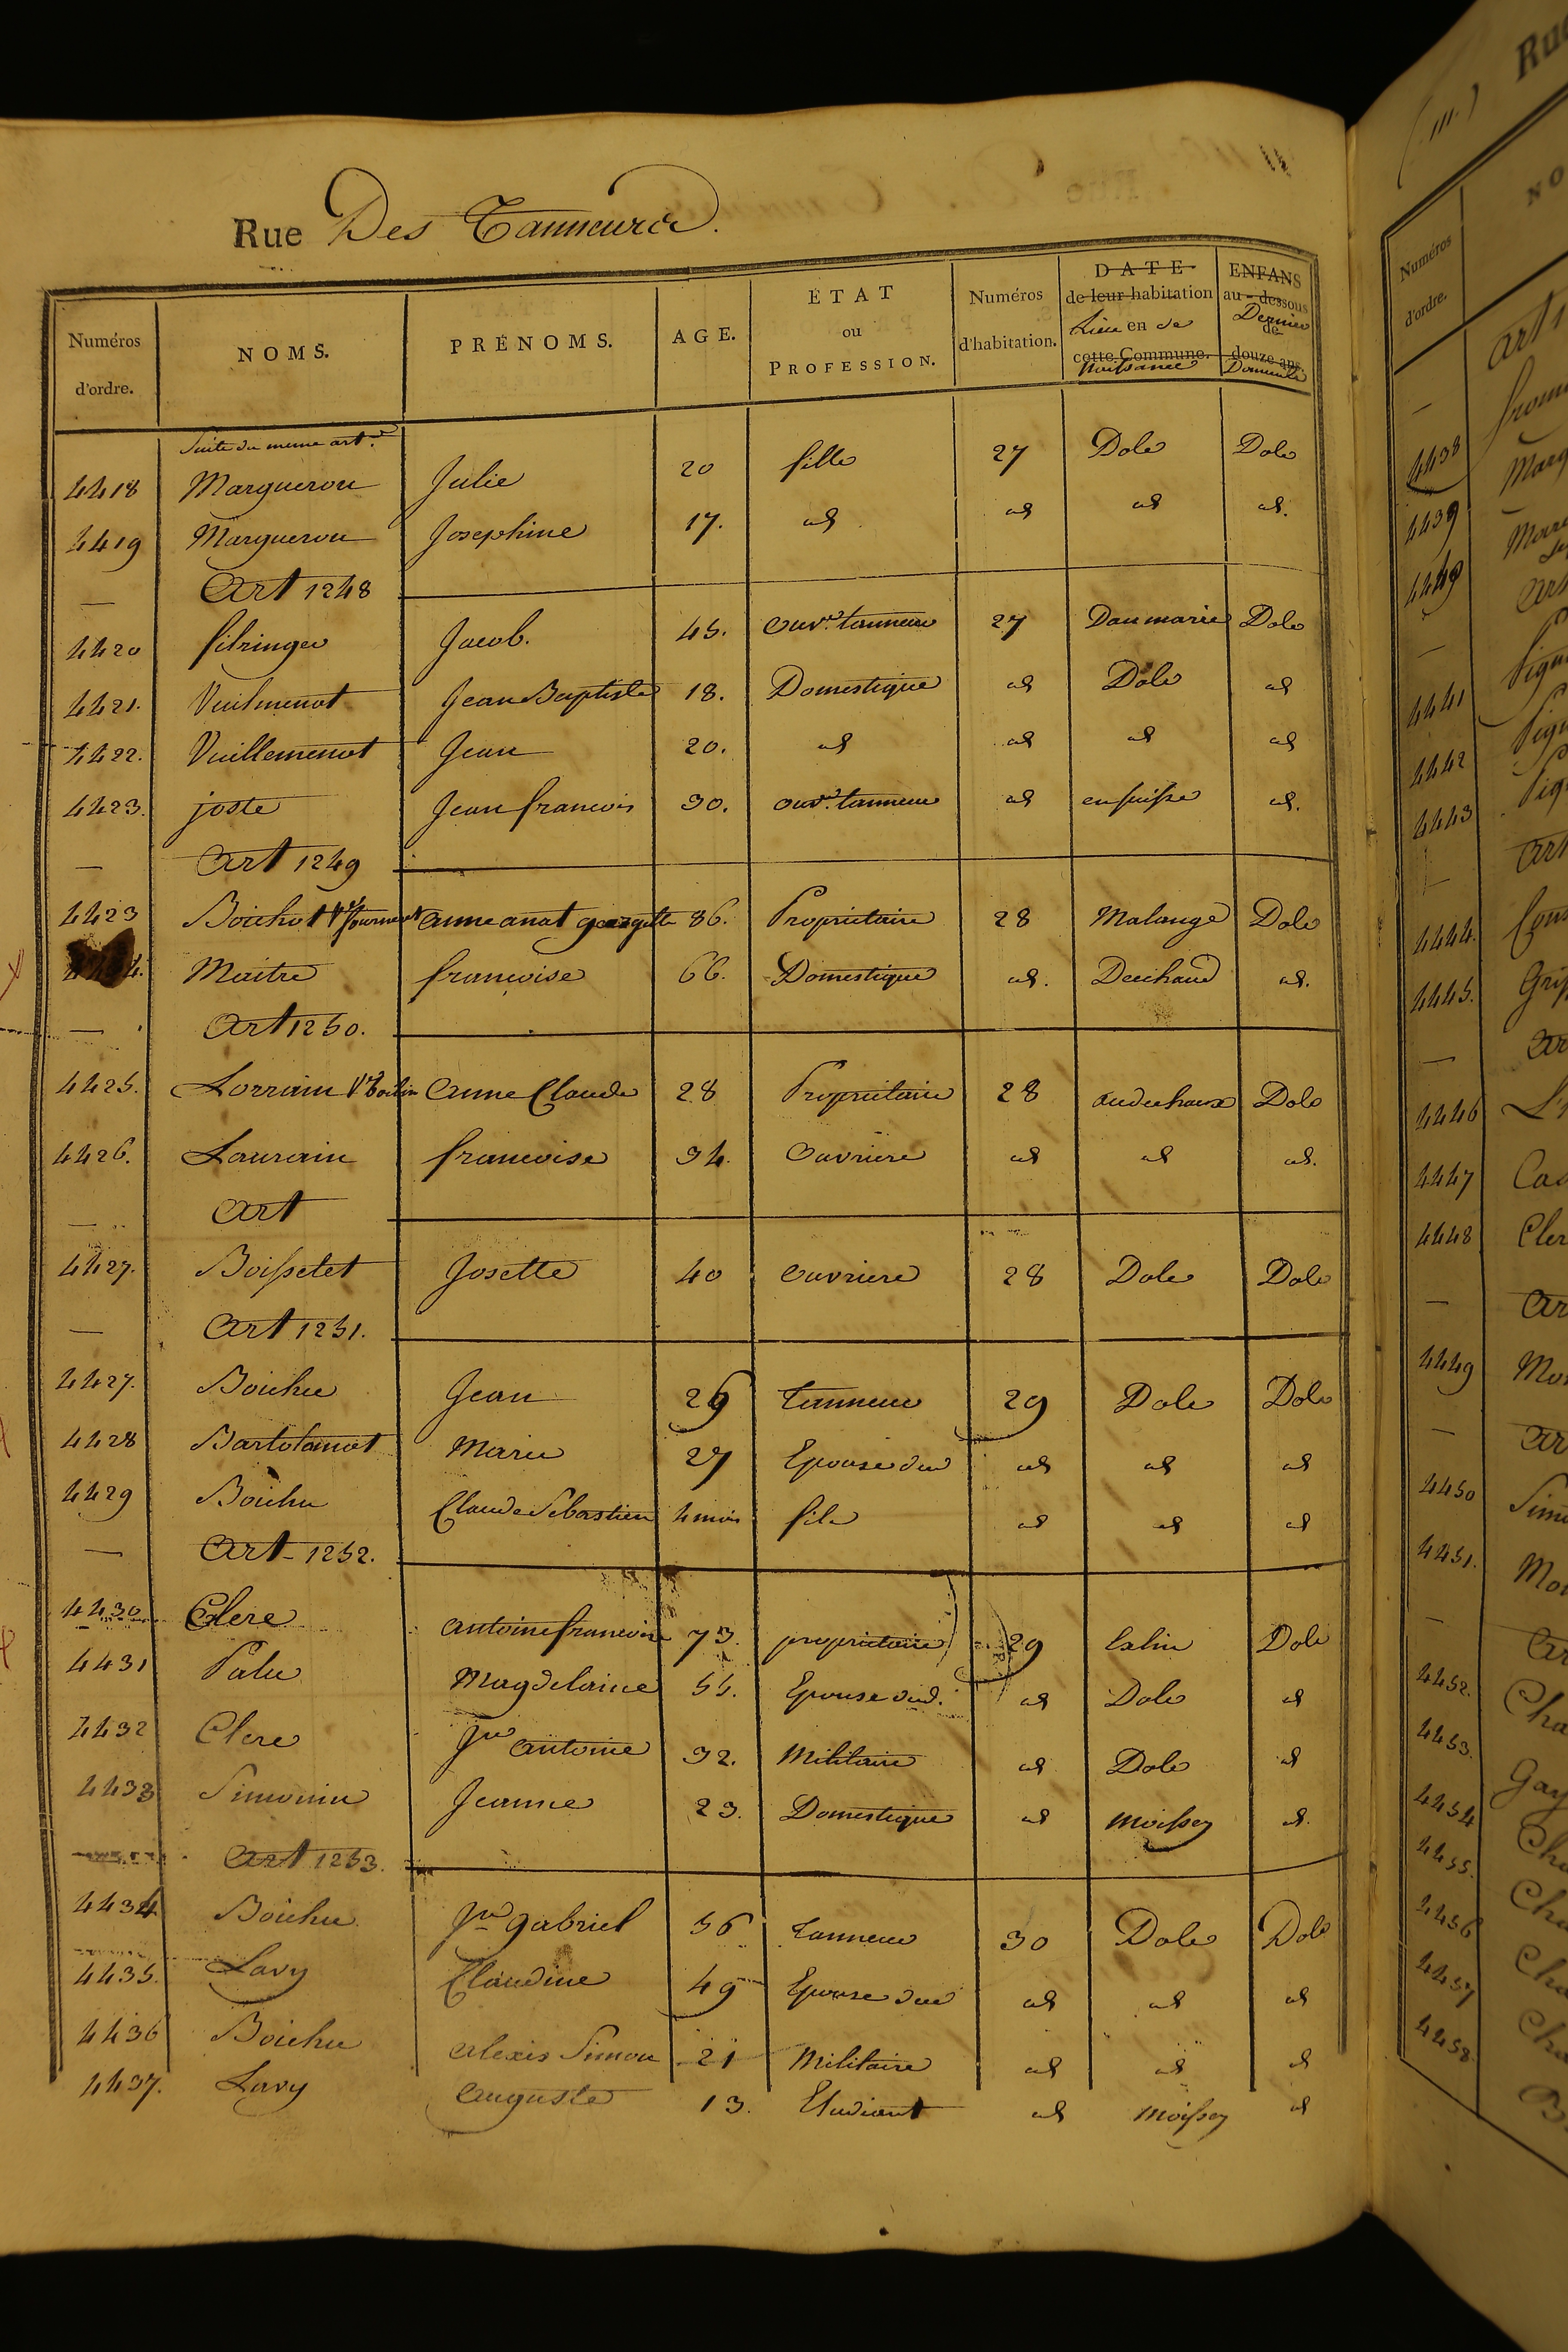 Rue Des Tanneurs.
Numéros d'ordre. NOMS. PRÉNOMS. AGE. ÉTAT ou PROFESSION. Numéros d'habitation. DATE de leur habitation en cette Commune. Lieu de Naissance ENFANS au-dessous de douze ans. Dernier Domicile
Suite du meme art.
4418 Margueron Julie 20 fille 27 Dole Dole
4419 Margueron Josephine 17. id id id id.
— Art 1248
4420 Jacob. 45. ouvr. tanneur 27 Danmarie Dole
4421. Vuilmenot Jean Baptiste 18. Domestique id Dole id
4422. Vuillemenot Jean 20. id id id id
4423. joste Jean francois 30. ouvr. tanneur id en suisse id.
— Art 1249
4423 Bouhot Ve anne anat georgette 86. Propriétaire 28 Malange Dole
Maitre francoise 66. Domestique id. id.
— Art 1250.
4425. Lorrain Ve anne Claude 28 Propriétaire 28 audechaux Dole
4426. Laurain francoise 34. ouvriere id id id.
— Art
4427. Boissetet Josette 40 ouvriere 28 Dole Dole
— Art 1251.
4427. Bouhu Jean 29 tanneur 29 Dole Dole
4428 Bartolamot Marie 27 Epouse du id id id
4429 Bouhu Claude Sebastien 4 mois fils id id id
— Art - 1252.
4430 Clere antoine francois 73. propriétaire 29 Salin Dole
4431 Palu Magdelaine 55. Epouse dud. id Dole id
4432 Clere Jn antoine 32. Militaire id Dole id
4433 Simonin Jeanne 23. Domestique id Moissey id.
Art 1253.
4434 Bouhu Jn gabriel 56 tanneur 30 Dole Dole
4435. Lavy Claudine 49 Epouse dud id id id
4436 Bouhu alexis Simon 21 Militaire id id id
4437. Lavy auguste 13. Etudiant id Moissey id
(111.) Rue
Numéros d'ordre. NO
4438
4439
4440
4441
4442
4443
4444.
4445.
4446
4447
4448 Cler
4449
4450
4451.
4452.
4453.
4454
4455.
4456
4457
4458